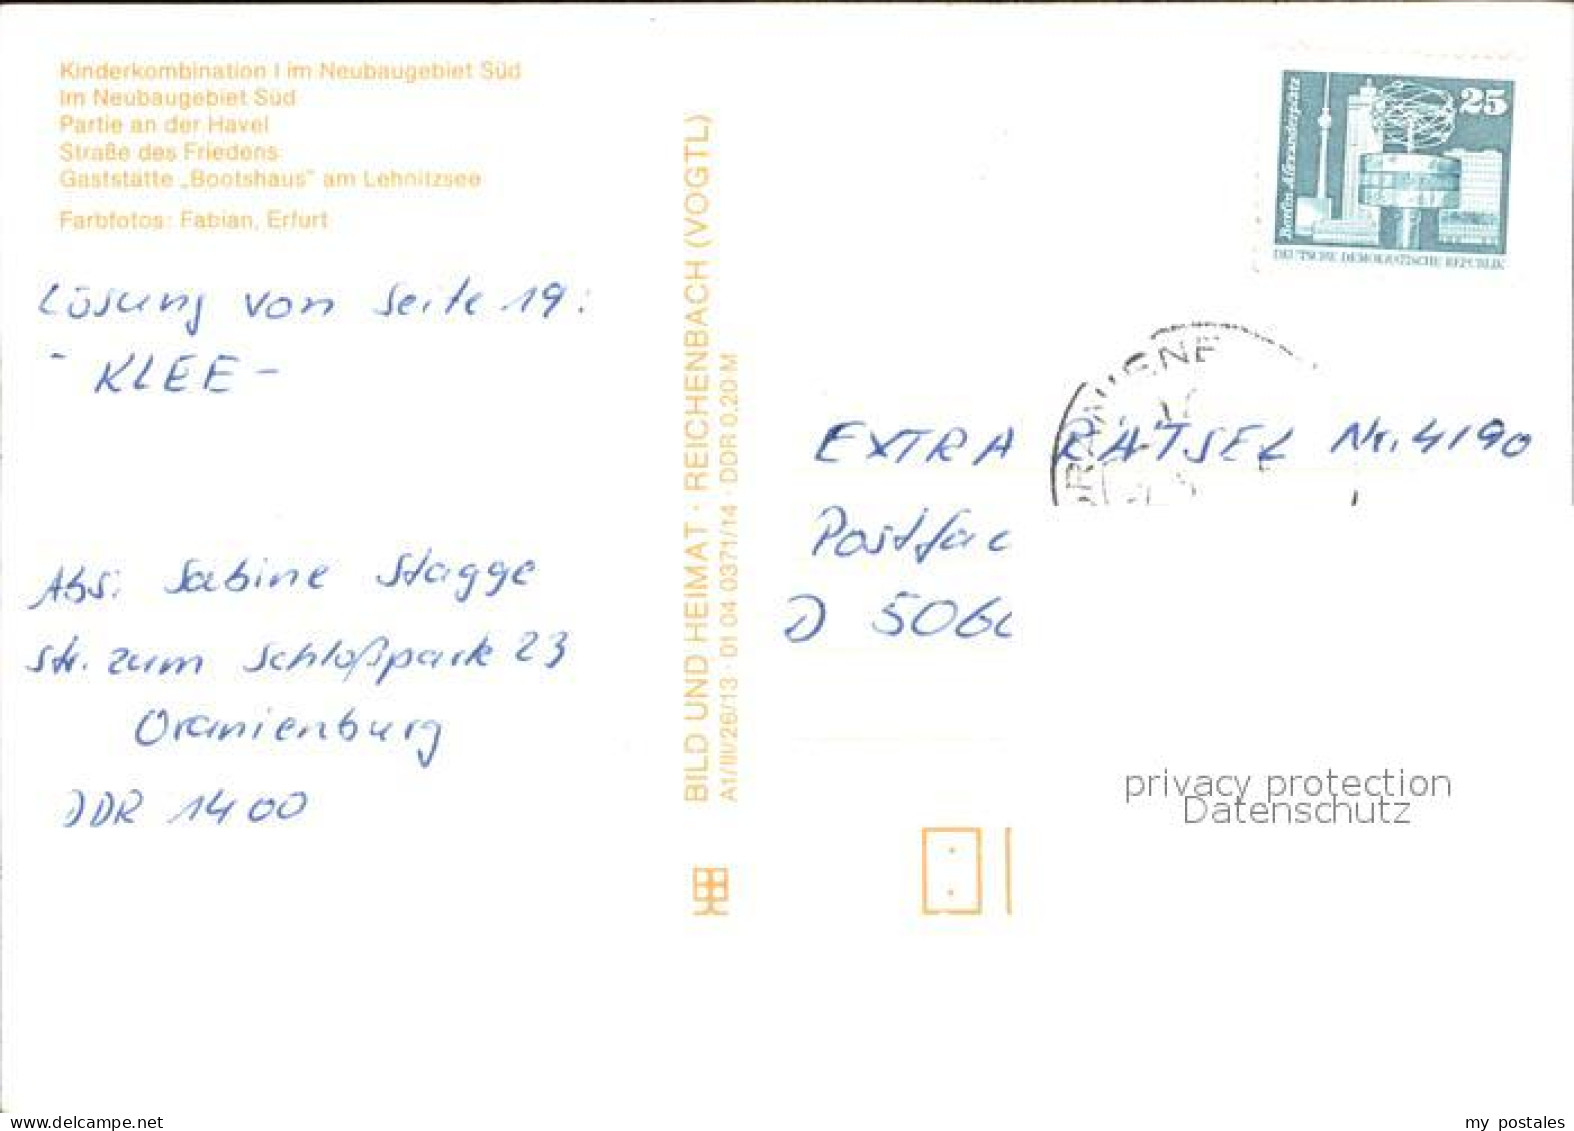 Kinderkombination I im Neubaugebiet Süd
Im Neubaugebiet Süd
Partie an der Havel
Straße des Friedens
Gaststätte „Bootshaus" am Lehnitzsee
Farbfotos: Fabian, Erfurt
Lösung von Seite 19:
- KLEE -
Abs: Sabine Stagge
Str. zum Schloßpark 23
Oranienburg
DDR 1400
BILD UND HEIMAT · REICHENBACH (VOGTL)
A1/III/26/13 · 01 04 0371/14 · DDR 0,20 M
25
Berlin Alexanderplatz
DEUTSCHE DEMOKRATISCHE REPUBLIK
EXTRA RÄTSEL Nr. 4/90
Postfac
D 506
privacy protection
Datenschutz
www.delcampe.net
my_postales